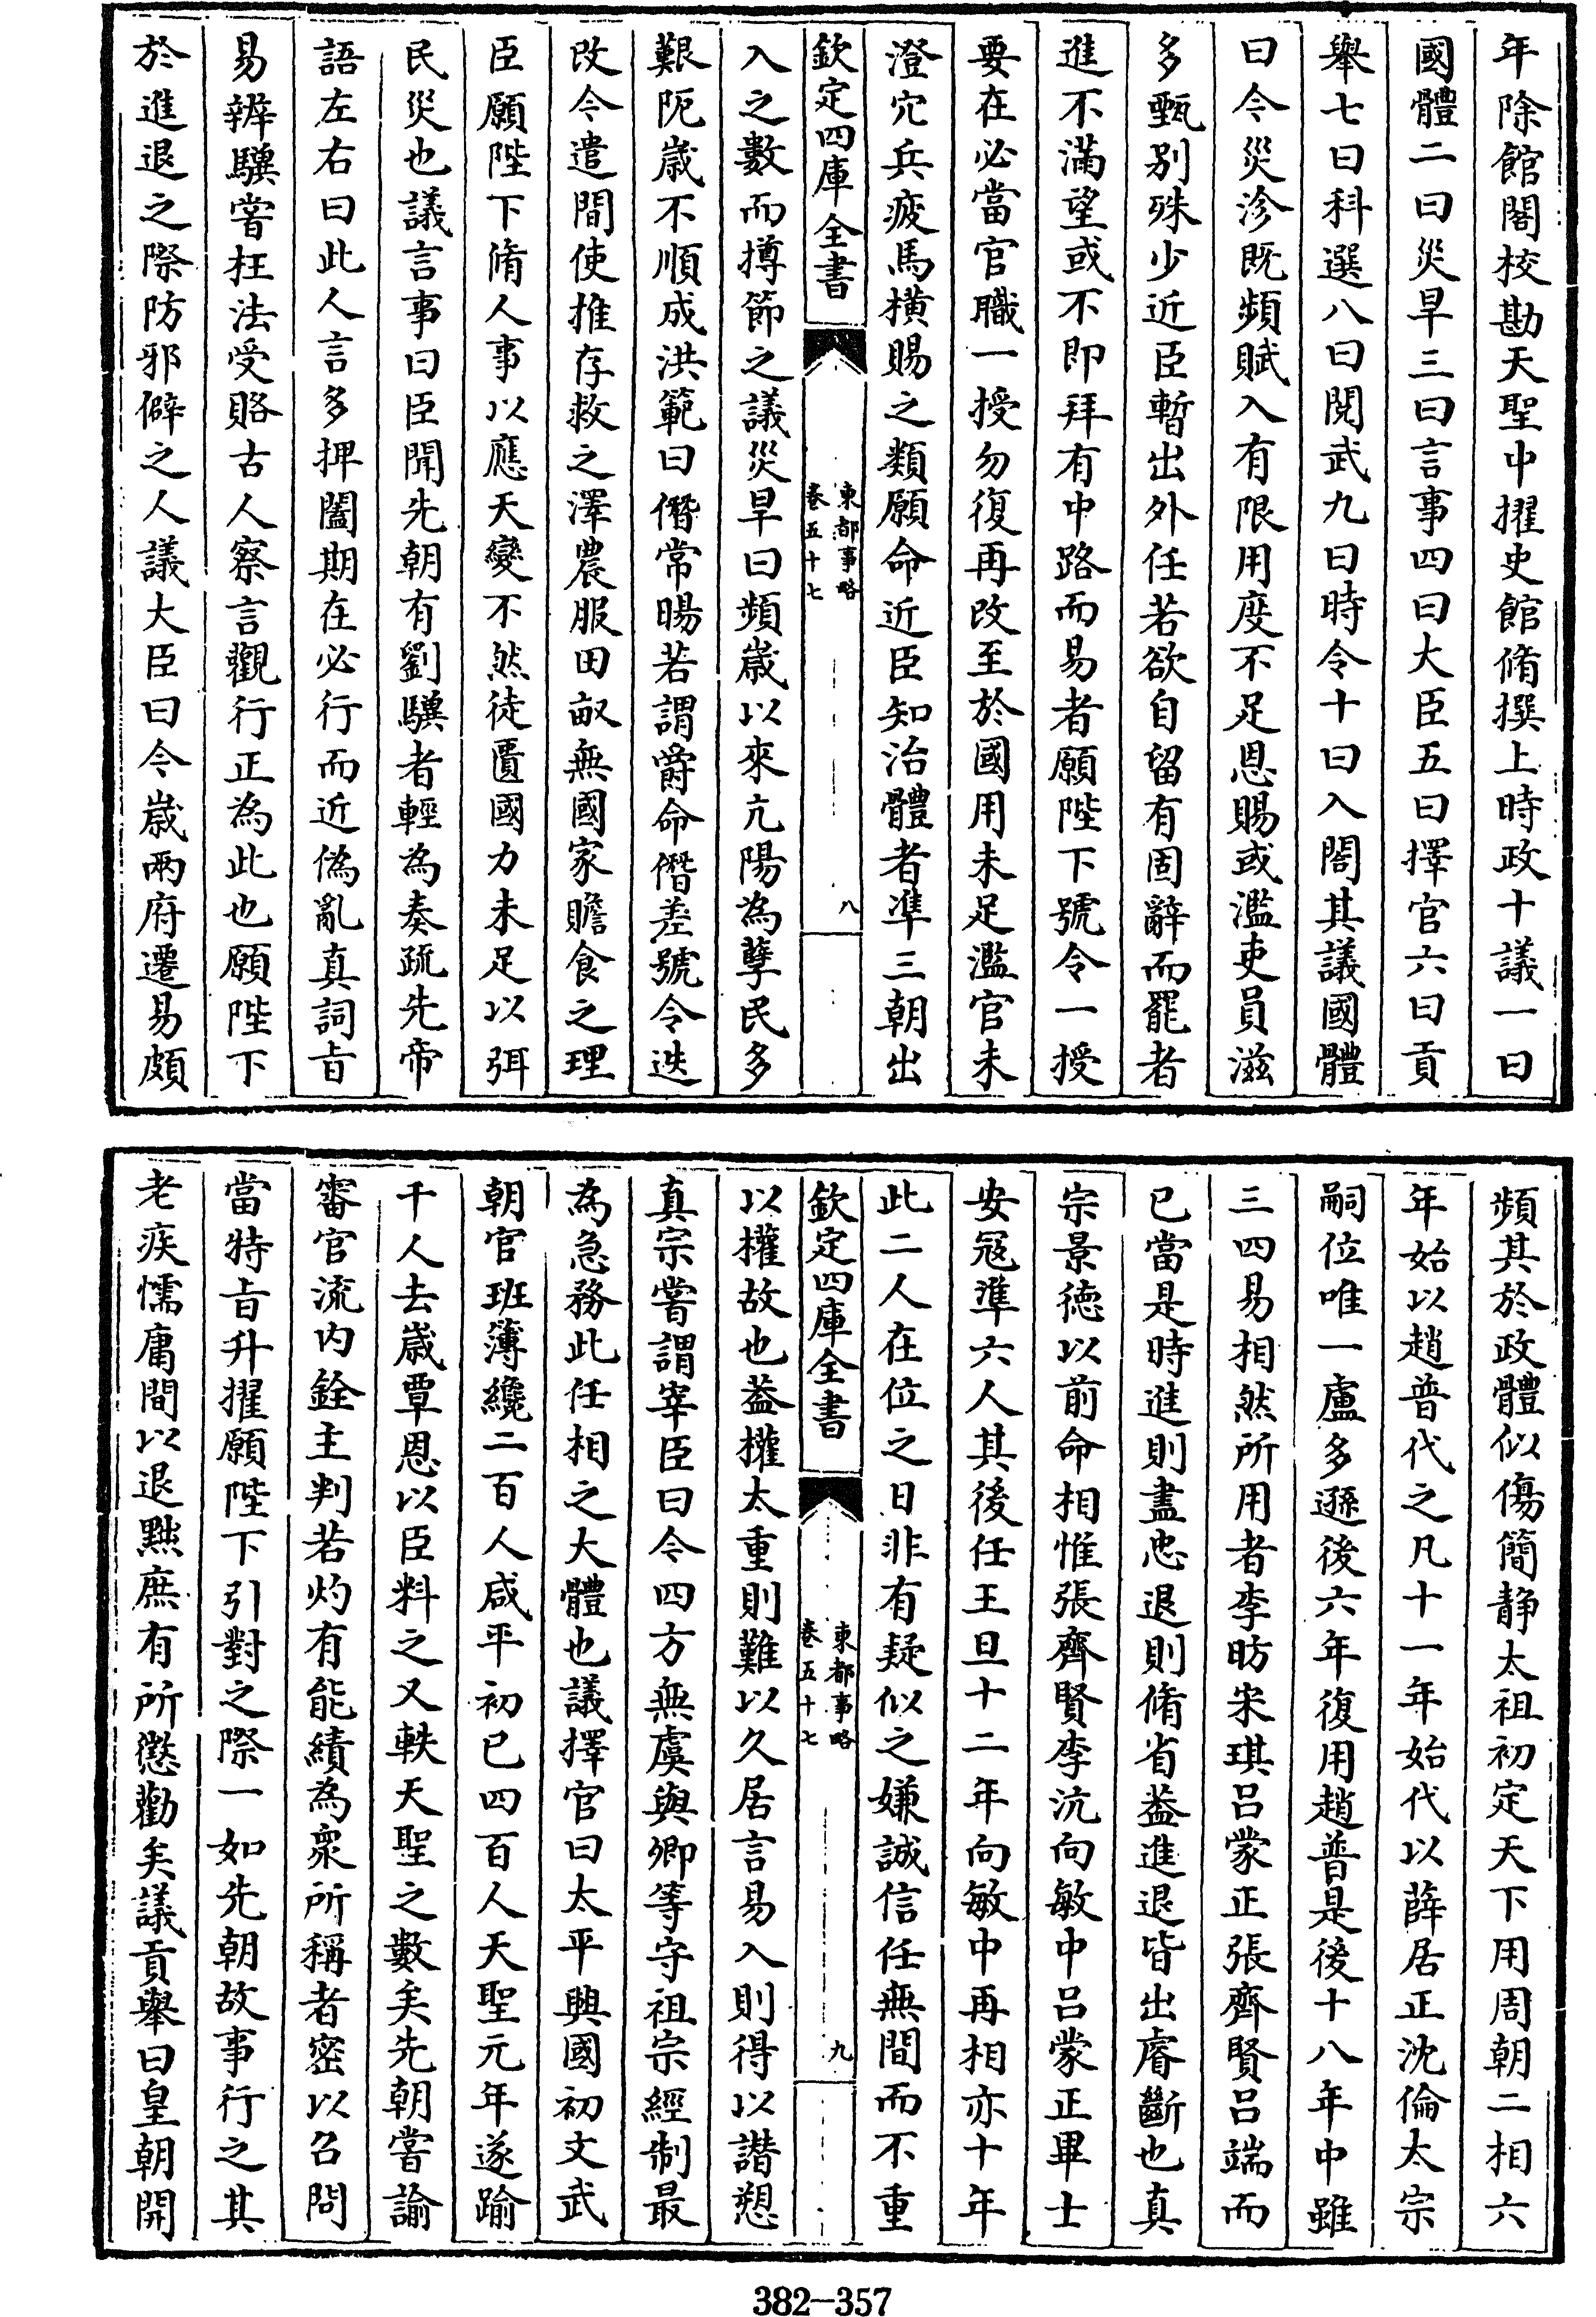 年除館閣校勘天聖中擢史館脩撰上時政十議一曰
國體二曰災旱三曰言事四曰大臣五曰擇官六曰貢
舉七曰科選八曰閱武九曰時令十曰入閤其議國體
曰今災沴既頻賦入有限用度不足恩賜或濫吏員滋
多甄别殊少近臣暫出外任若欲自留有固辭而罷者
進不滿望或不即拜有中路而易者願陛下號令一授
要在必當官職一授勿復再改至於國用未足濫官未
澄冗兵疲馬横賜之類願命近臣知治體者準三朝出
欽定四庫全書
東都事略
卷五十七
八
入之數而撙節之議災旱曰頻嵗以來亢陽為孽民多
艱阨嵗不順成洪範曰僭常暘若謂爵命僭差號令迭
改今遣間使推存救之澤農服田畝無國家贍食之理
臣願陛下脩人事以應天變不然徒匱國力未足以弭
民災也議言事曰臣聞先朝有劉騤者輕為奏疏先帝
語左右曰此人言多捭闔期在必行而近偽亂真詞㫖
易辨騤嘗枉法受賂古人察言觀行正為此也願陛下
於進退之際防邪僻之人議大臣曰今嵗兩府遷易頗
頻其於政體似傷簡静太祖初定天下用周朝二相六
年始以趙普代之凡十一年始代以薛居正沈倫太宗
嗣位唯一盧多遜後六年復用趙普是後十八年中雖
三四易相然所用者李昉宋琪吕蒙正張齊賢吕端而
已當是時進則盡忠退則脩省葢進退皆出睿斷也真
宗景德以前命相惟張齊賢李沆向敏中吕蒙正畢士
安冦準六人其後任王旦十二年向敏中再相亦十年
此二人在位之日非有疑似之嫌誠信任無間而不重
欽定四庫全書
東都事略
卷五十七
九
以權故也葢權太重則難以久居言易入則得以譖愬
真宗嘗謂宰臣曰今四方無虞與卿等守祖宗經制最
為急務此任相之大體也議擇官曰太平興國初文武
朝官班簿纔二百人咸平初已四百人天聖元年遂踰
千人去嵗覃恩以臣料之又軼天聖之數矣先朝嘗諭
審官流内銓主判若灼有能績為衆所稱者密以名問
當特㫖升擢願陛下引對之際一如先朝故事行之其
老疾懦庸間以退黜庶有所懲勸矣議貢舉曰皇朝開
382-357